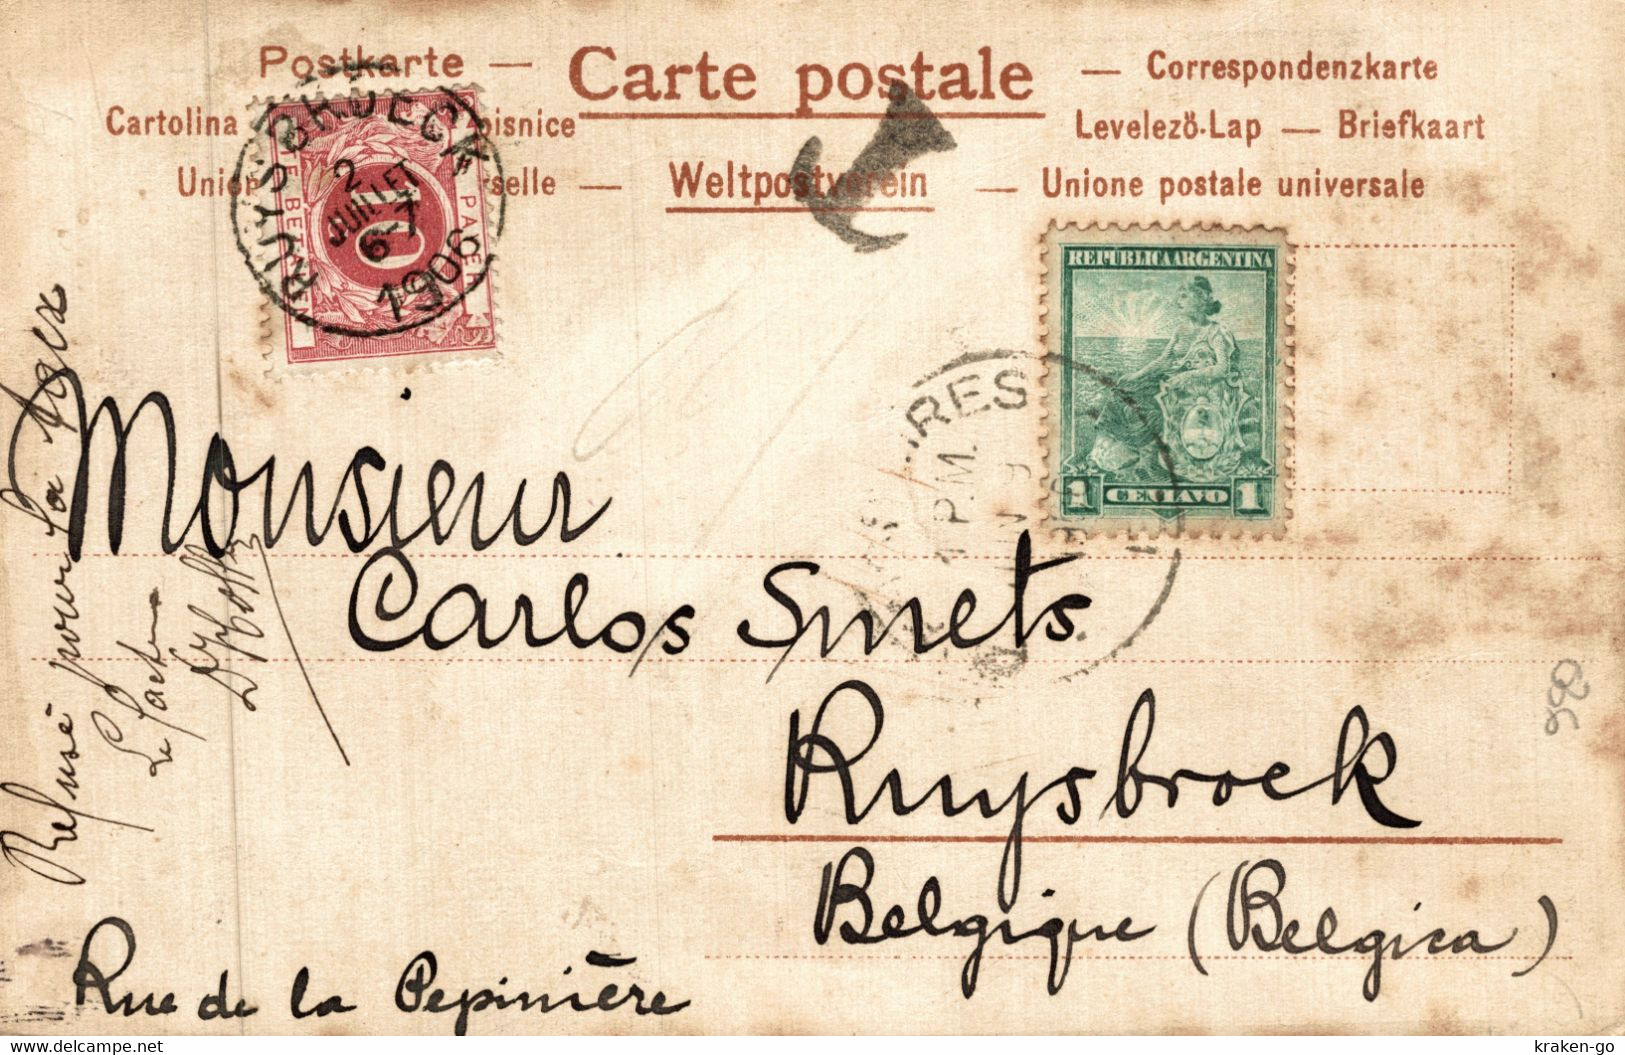 Postkarte — Carte postale — Correspondenzkarte
Cartolina pisnice Levelező-Lap — Briefkaart
Union selle — Weltpostverein — Unione postale universale
RUYSBROECK
2
JUILLET
6-7
1906
TE BETALEN
A PAYER
10
T
REPUBLICA ARGENTINA
1 CENTAVO 1
RES
1 P.M.
Monsieur
Carlos Smets
Ruysbroek
Belgique (Belgica)
Rue de la Pepinière
Refusé pour la taxe
Le facteur
980